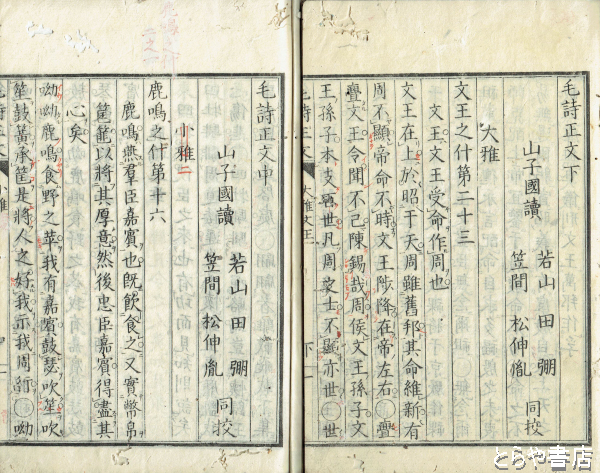 毛詩正文下
山子國讀 若山 田 弸
笠間 松伸胤 同挍
大雅
文王之什第二十三
文王文王受命作周也
文王在上於昭于天周雖舊邦其命維新有
周不顯帝命不時文王陟降在帝左右〇亹
亹文王令聞不已陳錫哉周侯文王孫子文
王孫子本支百世凡周之士不顯亦世〇世
毛詩正文
大雅文王
下 一
毛詩正文中
山子國讀 若山 田 弸
笠間 松伸胤 同挍
小雅二
鹿鳴之什第十六
鹿鳴燕羣臣嘉賓也旣飲食之又實幣帛
筐篚以將其厚意然後忠臣嘉賓得盡其
心矣
呦呦鹿鳴食野之苹我有嘉賓鼓瑟吹笙吹
笙鼓簧承筐是將人之好我示我周行〇呦
毛詩正文
小雅
とらや書店